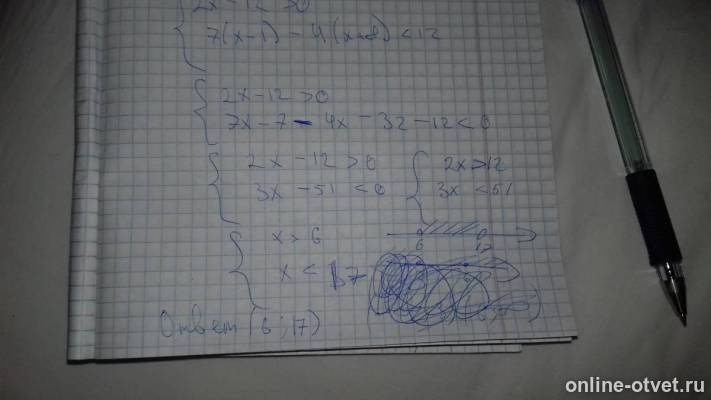 2x - 12 > 0
7(x-1) - 4(x+8) < 12
2x - 12 > 0
7x - 7 - 4x - 32 - 12 < 0
2x - 12 > 0
3x - 51 < 0
2x > 12
3x < 51
x > 6
x < 17
6 17
Ответ (6; 17)
online-otvet.ru